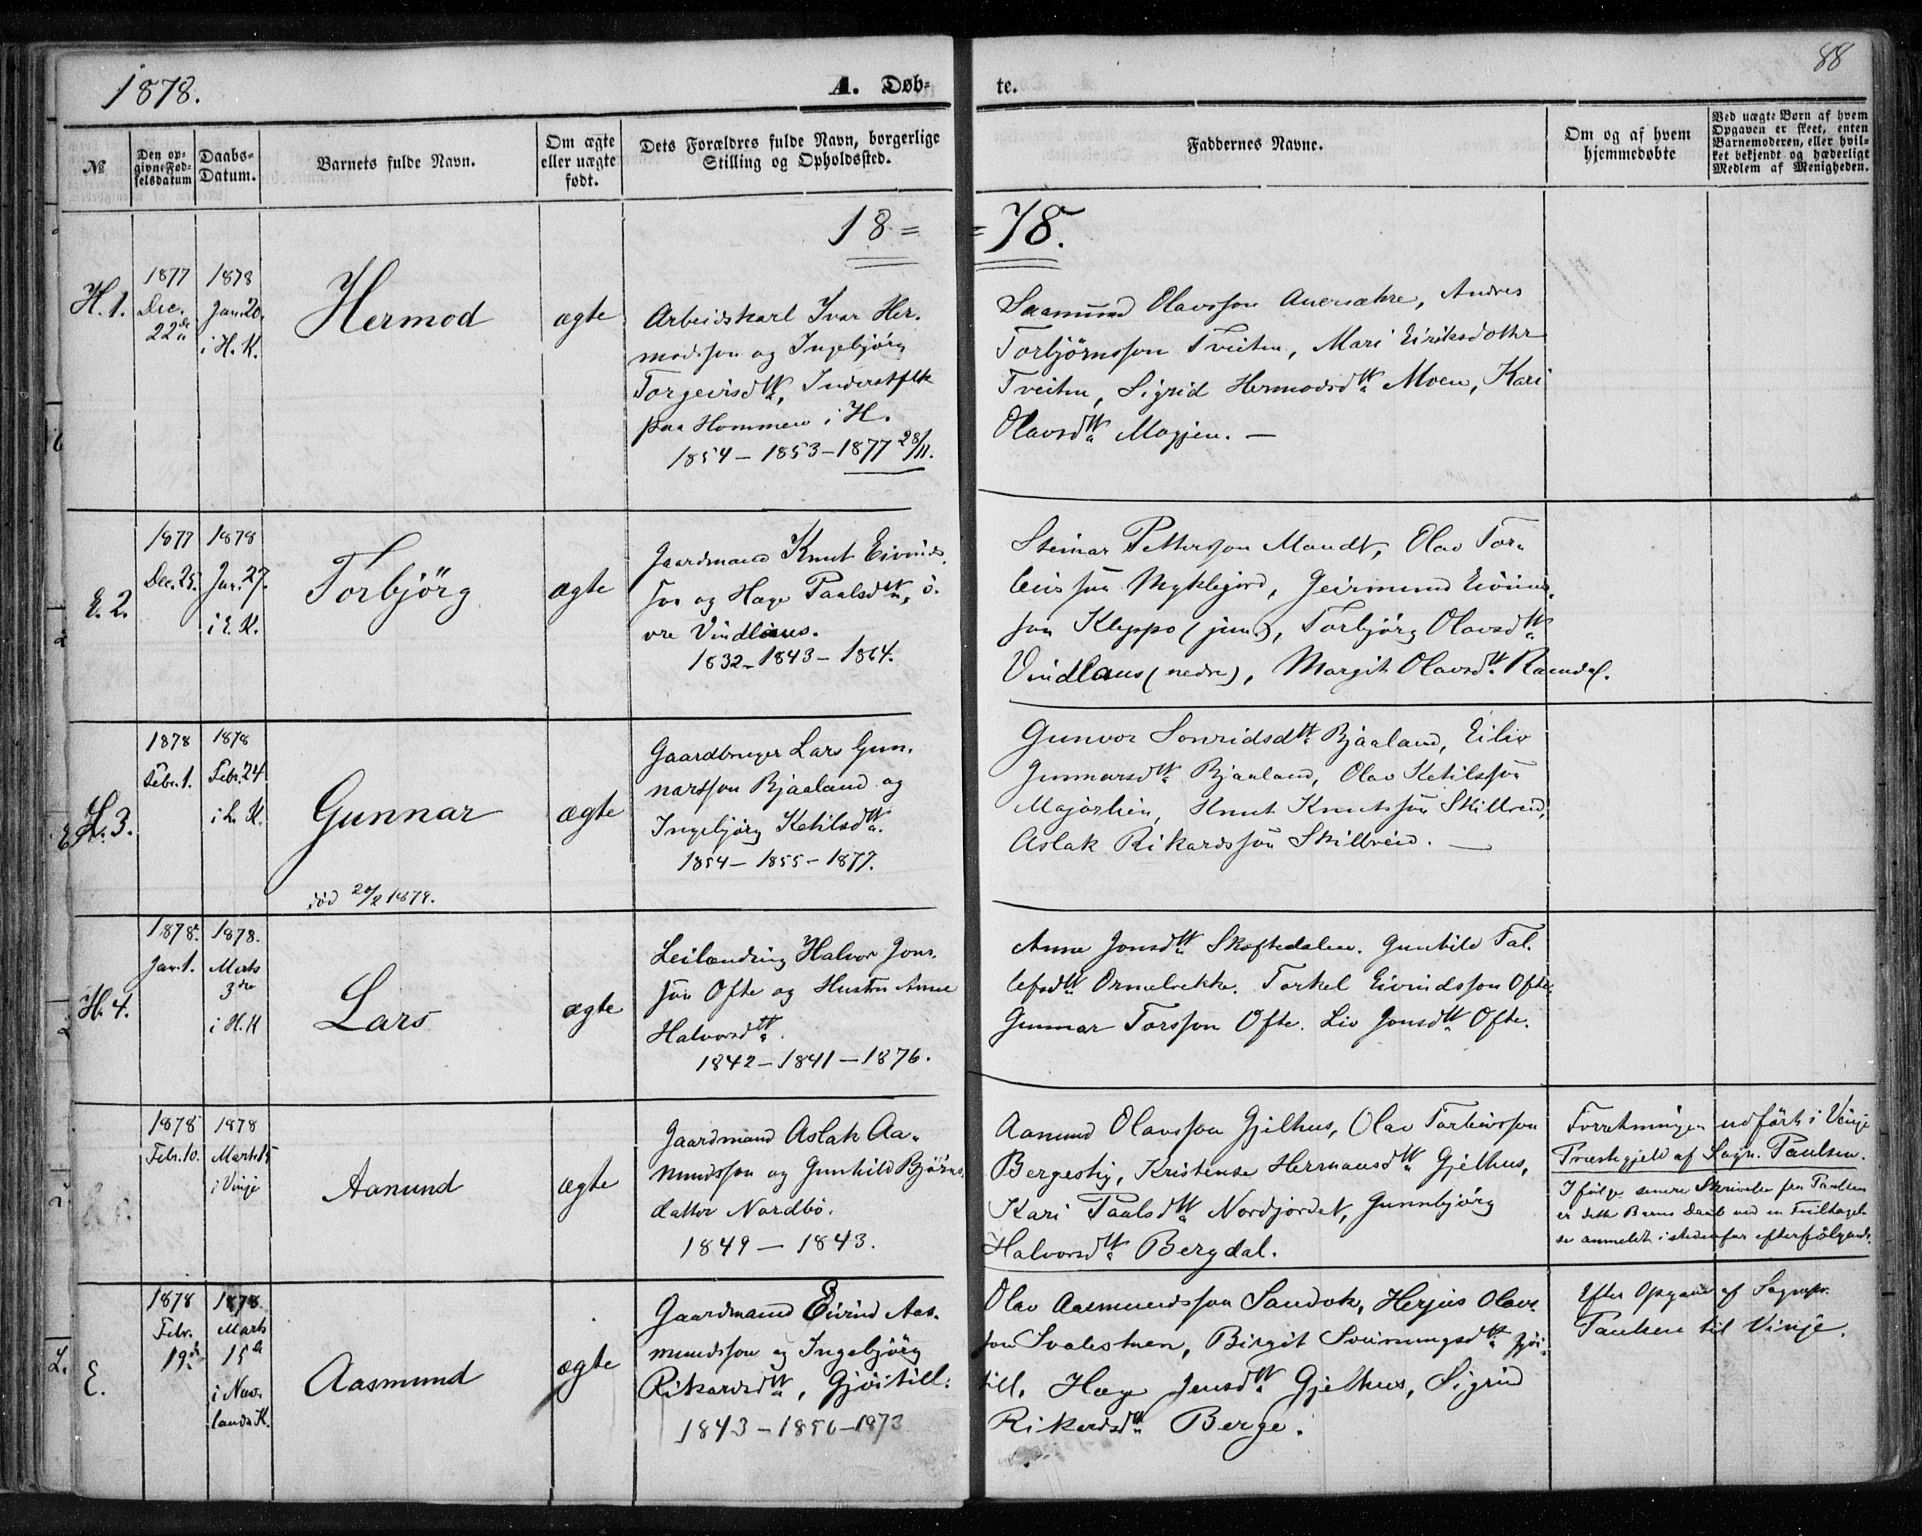 1878.
A. Døb-
te.
88
№
Den op-
givne Fød-
selsdatum
Daabs-
Datum.
Barnets fulde Navn.
Om ægte
eller uægte
født.
Dets Forældres fulde Navn, borgerlige
Stilling og Opholdssted.
Faddernes Navne.
Om og af hvem
hjemmedøbte
Ved uægte Børn af hvem
Opgaven er skeet, enten
Barnemoderen, eller hvil-
ket bekjendt og hæderligt
Medlem af Menigheden.
18 =
= 78.
H. 1.
1877
Dec.
22de
1878
Jan. 20.
i H. K.
Hermod
ægte
Arbeidskarl Ivar Her-
modsson og Ingebjörg
Torgeirsdtr,
paa Hommen i H.
1854 – 1853 – 1877 28/11.
Saamund Olavsson Aversæhre, Andres
Torbjörnsson Tveiten, Mari Eiriksdotter
Tveiten, Sigrid Hermodsdtr Moen, Kari
Olavsdtr Mogjen. –
E. 2.
1877
Dec. 25.
1878
Jan. 27.
i E. K.
Torbjörg
ægte
Gaardmand Knut Eivinds-
son og Hæge Paalsdtr, ö-
vre Vindlaus.
1832 – 1843 – 1864.
Steinar Pettersson Mandt, Olav Tor-
leivsson Myklejord, Geirmund Eivinds-
son Kleppo (jun.), Torbjörg Olavsdtr
Vindlaus (nedre), Margit Olavsdtr Ramdal.
H. 3.
1878
Febr. 1.
1878
Febr. 24
i L. K.
Gunnar
død 20/2 1879.
ægte
Gaardbruger Lars Gun-
narsson Bjaaland og
Ingebjörg Ketilsdtr.
1854 – 1855 – 1877.
Gunvor Sonridsdtr Bjaaland, Eiliv
Gunnarsdtr Bjaaland, Olav Ketilsson
Knut Knutsson Skilbreid,
Aslak Rikardsson Skilbreid. –
H. 4.
1878.
Jan. 1.
1878.
Marts
3die
i H. K
Lars
ægte
Leilænding Halvor Jons-
son Ofte og Hustru Anne
Halvorsdtr.
1842 – 1841 – 1876.
Anne Jonsdtr Skoftedalen. Gunhild Tal-
lefsdtr Ormelrekke. Torkel Eivindsson Ofte.
Gunnar Torsson Ofte. Liv Jonsdtr Ofte.
1878
Febr. 10.
1878
Marts 15
i Vinje
Aanund
ægte
Gaardmand Aslak Aa-
nundsson og Gunhild Björns-
datter Nordbö.
1849 – 1843.
Aanund Olavsson Gjelhus, Olav Torleivsson
Bergestig, Kristense Hermansdtr Gjelhus,
Kari Paalsdtr Nordjordet, Gunnbjörg
Halvorsdtr Bergdal.
Forretningen udfört i Vinje
Præstegjeld af Sogn. Paulsen.
Ifölge senere Skrivelse fra Paulsen
er dette Barns Daab ved en Feiltagel-
se anmeldt istedenfor efterfölgende.
E.
1878
Febr.
19de
1878
Marts
15de
i Nes-
landK.
Aasmund
ægte
Gaardmand Eivind Aas-
mundsson og Ingebjörg
Rikardsdtr, Gjöitill.
1843 – 1850 – 1873
Olav Aasmundsson Sandok, Herjus Olavs-
son Svalestuen, Birgit Sveinungsdtr Gjöi-
till, Hæge Jensdtr Gjelhus, Sigrid
Rikardsdtr Berge.
Efter Opgave af Sognepr.
Paulsen til Vinje.